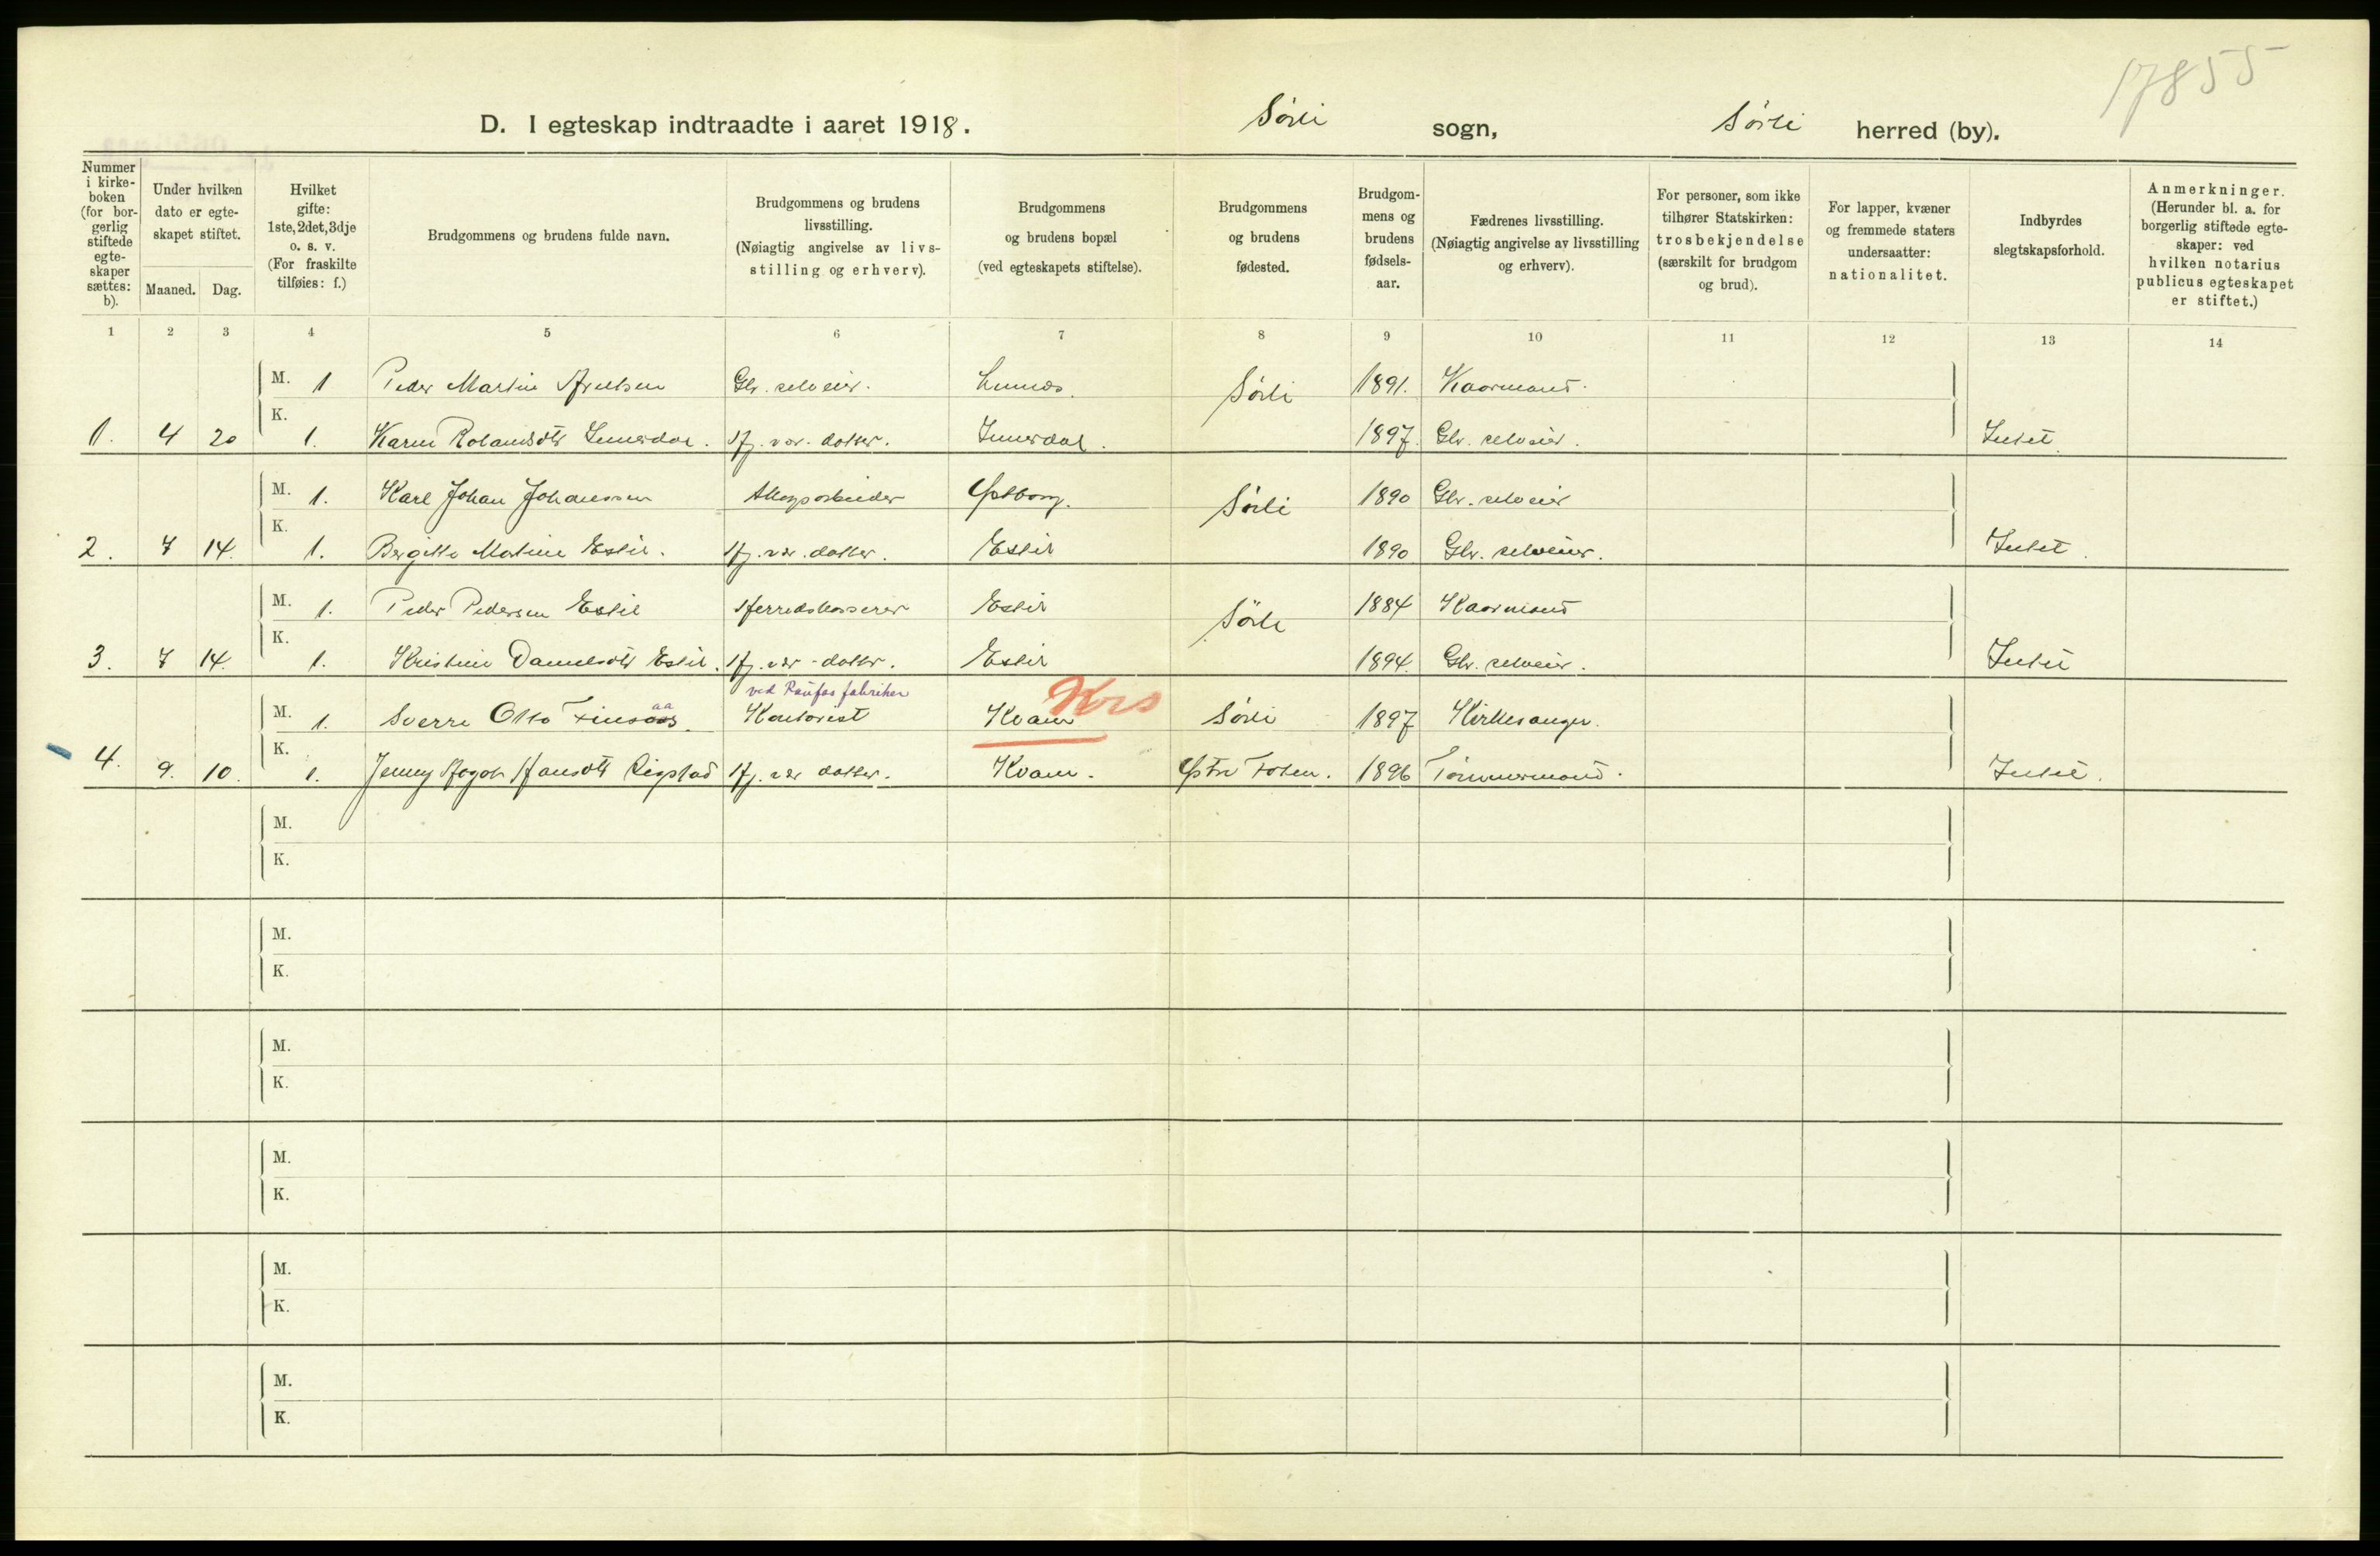 17855
D. I egteskap indtraadte i aaret 1918. Sörli sogn, Sörli herred (by).
Nummer i kirkeboken (for borgerlig stiftede egteskaper sættes: b).
Under hvilken dato er egteskapet stiftet.
Maaned. Dag.
Hvilket gifte: 1ste, 2det, 3dje o. s. v. (For fraskilte tilføies: f.)
Brudgommens og brudens fulde navn.
Brudgommens og brudens livsstilling. (Nøiagtig angivelse av livsstilling og erhverv).
Brudgommens og brudens bopæl (ved egteskapets stiftelse).
Brudgommens og brudens fødested.
Brudgommens og brudens fødselsaar.
Fædrenes livsstilling. (Nøiagtig angivelse av livsstilling og erhverv).
For personer, som ikke tilhører Statskirken: trosbekjendelse (særskilt for brudgom og brud).
For lapper, kvæner og fremmede staters undersaatter: nationalitet.
Indbyrdes slegtskapsforhold.
Anmerkninger. (Herunder bl. a. for borgerlig stiftede egteskaper: ved hvilken notarius publicus egteskapet er stiftet.)
1 2 3 4 5 6 7 8 9 10 11 12 13 14
M. 1 Peder Martin Gbr. selveier. Sörli 1891. Kaarmand.
1. 4 20 K. 1. Karen Rolandsdtr Inderdal. Hj. vær. datter. Inderdal. 1897. Gbr. selveier. Intet
M. 1. Karl Johan Johanssen Skogsarbeider Östborg. Sörli 1890 Gbr. selveier
2. 7 14. K. 1. Bergitte Martine Estil. Hj. vær. datter. Estil 1890 Gbr. selveier. Intet.
M. 1. Peder Pedersen Estil Herredskasserer Estil Sörli 1884 Kaarmand
3. 7 14. K. 1. Kristine Danielsdtr Estil. Hj. vær. datter. Estil 1894. Gbr. selveier. Intet
ved Raufos fabriker
Krs
aa
M. 1. Sverre Otto Finsaas. Kontorist Kvam Sörli 1897 Kirkesanger.
4. 9. 10. K. 1. Jenny Hansdtr Rigstad Hj. vær datter. Kvam. Östre Toten. 1896 Tömmermand. Intet.
M.
K.
M.
K.
M.
K.
M.
K.
M.
K.
M.
K.